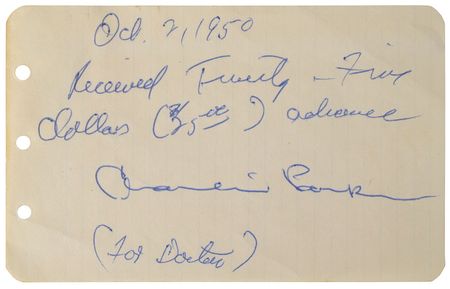 Oct. 2, 1950
Received Twenty-Five
dollars ($25.00) advance
Charlie Parker
(For Doctor)